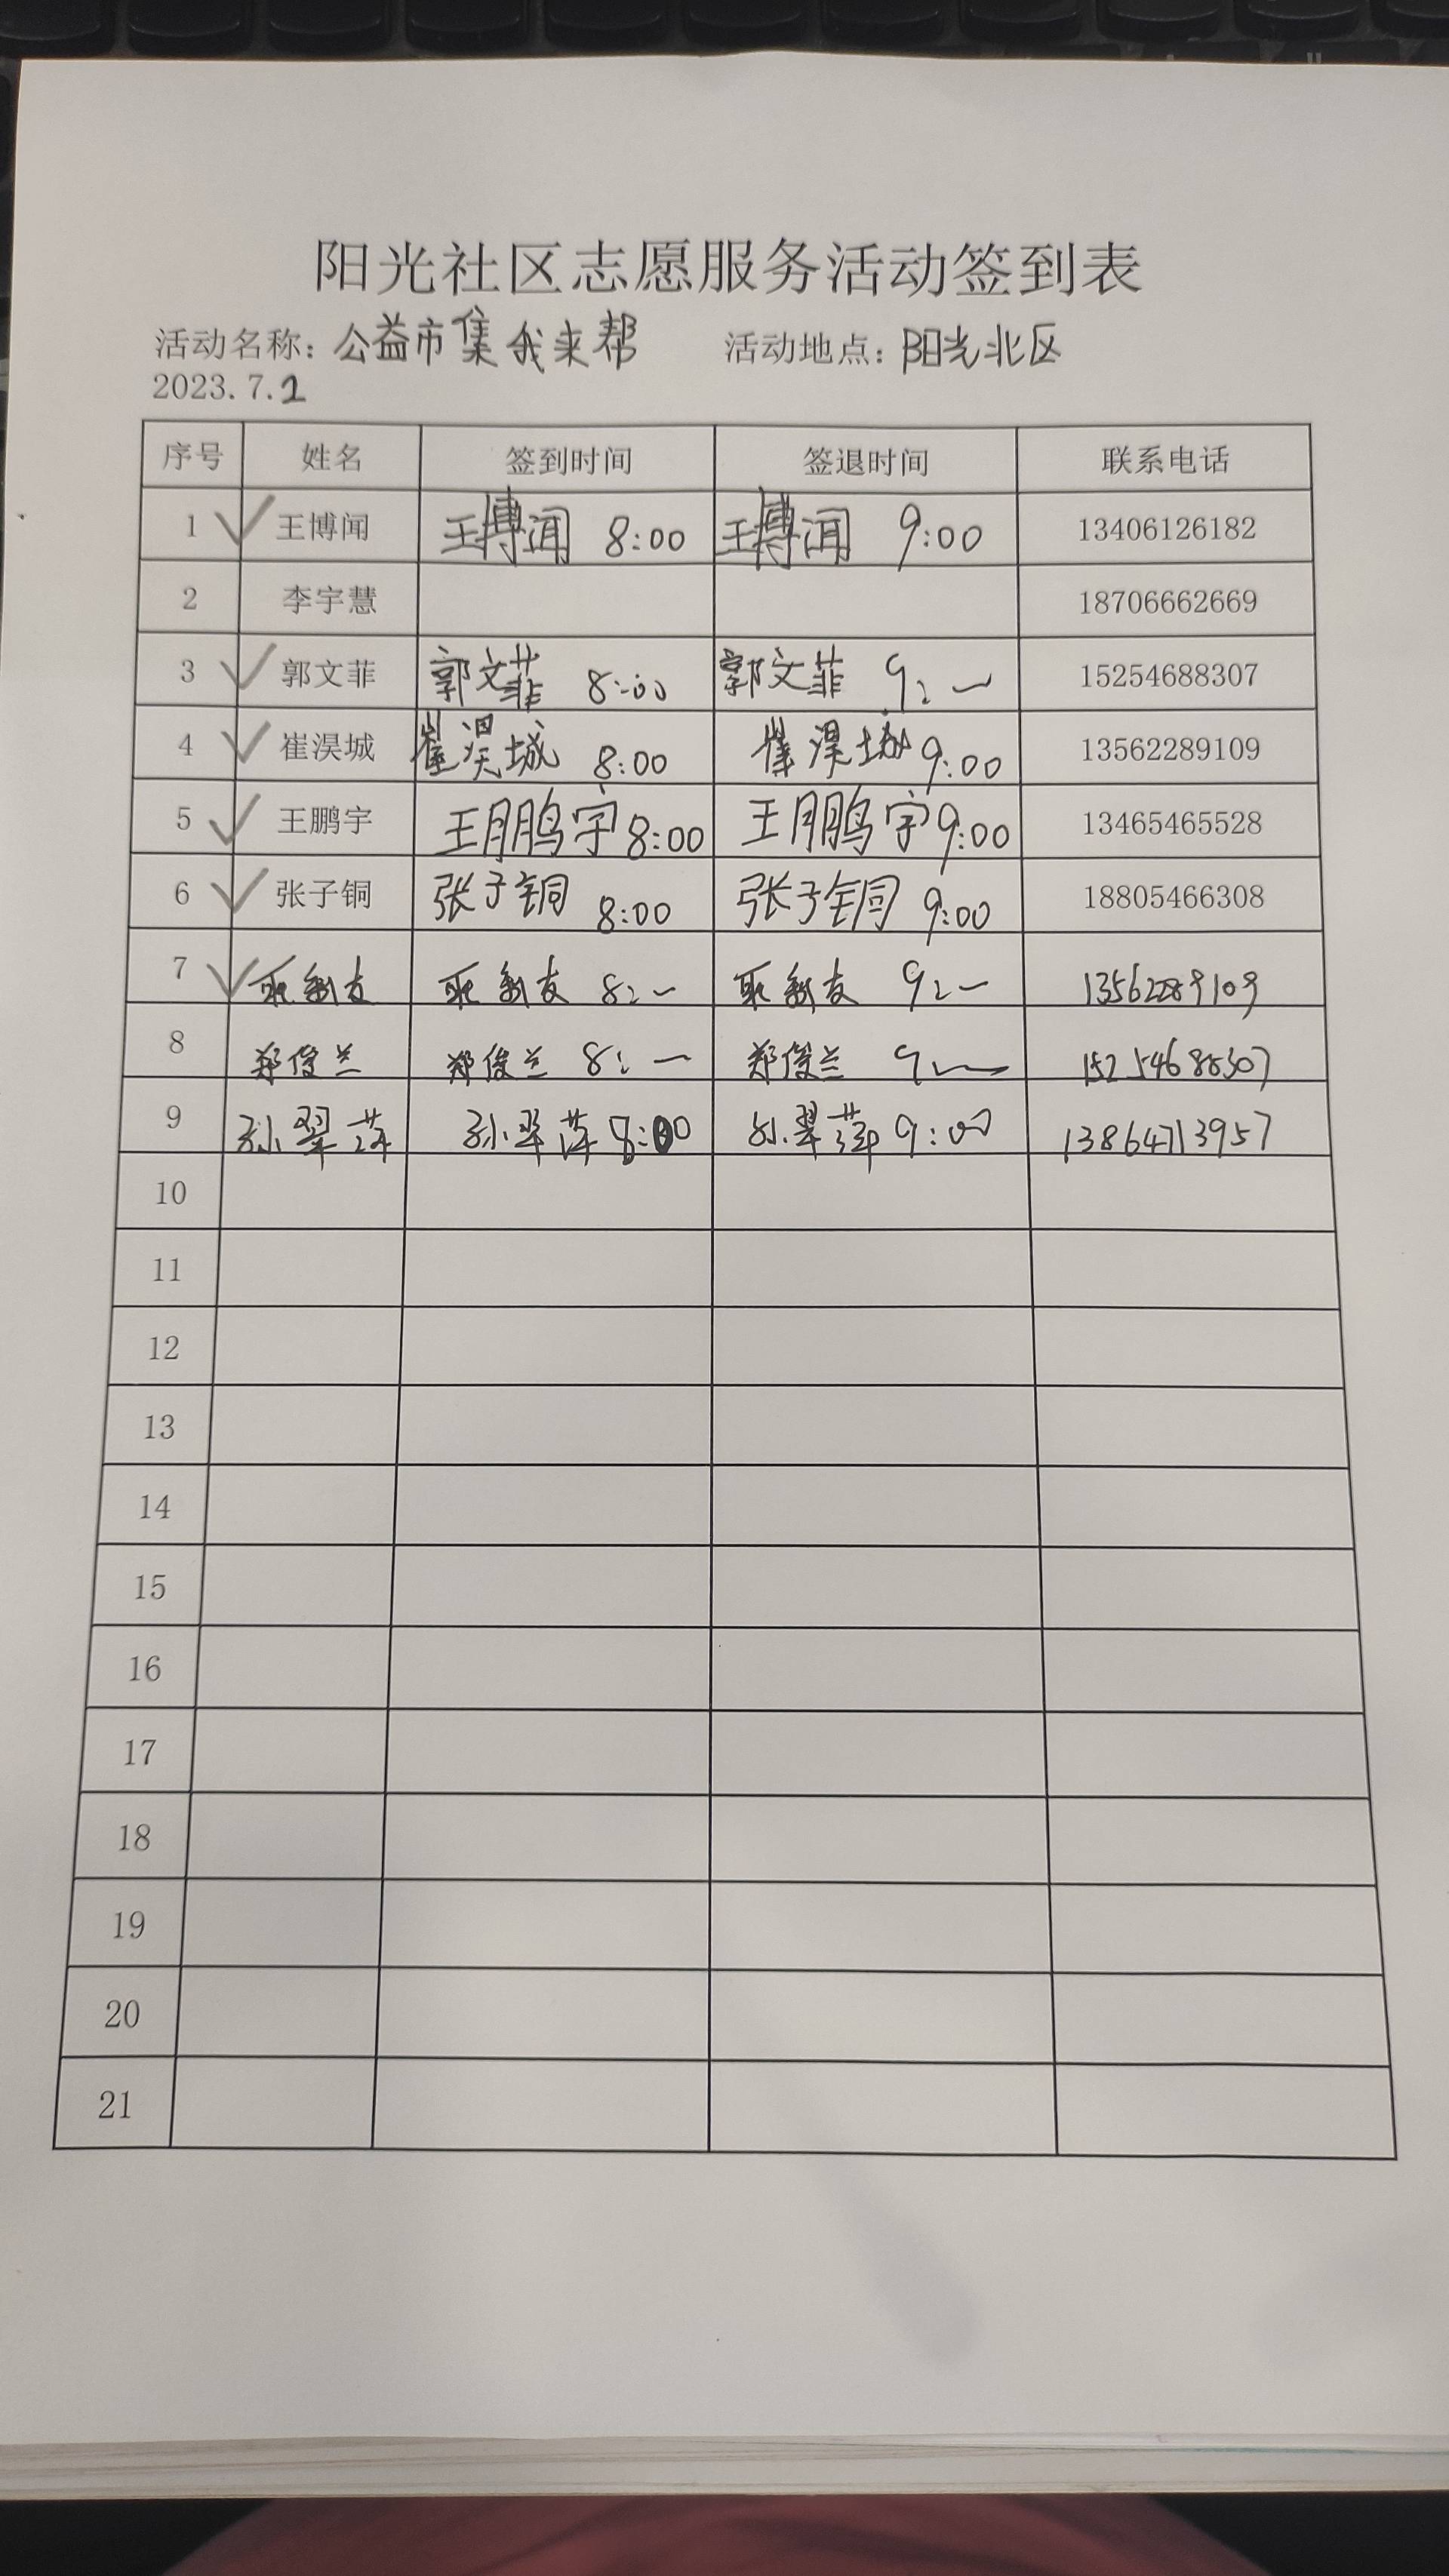 阳光社区志愿服务活动签到表
活动名称：公益市集我来帮 活动地点：阳光北区
2023.7.2
序号 姓名 签到时间 签退时间 联系电话
1 王博闻 王博闻 8:00 王博闻 9:00 13406126182
2 李宇慧 18706662669
3 郭文菲 郭文菲 8:00 郭文菲 9: 15254688307
4 崔淏城 崔淏城 8:00 崔淏城 9:00 13562289109
5 王鹏宇 王鹏宇 8:00 王鹏宇 9:00 13465465528
6 张子铜 张子铜 8:00 张子铜 9:00 18805466308
7 8: 9: 13562289109
8 郑俊兰 郑俊兰 8: 郑俊兰 9: 15254688307
9 孙翠萍 孙翠萍 8:00 孙翠萍 9:00 13864713957
10
11
12
13
14
15
16
17
18
19
20
21